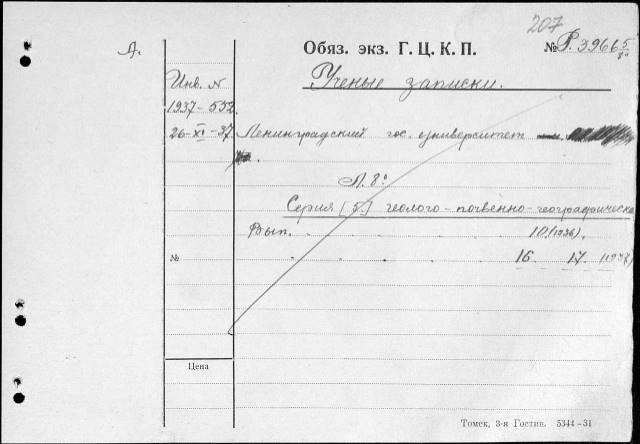 207
Обяз. экз. Г. Ц. К. П. № Р. 39665
А.
Инв. № Ученые записки.
1937-552
26-XI-37 Ленинградский гос. университет
Л. 8°
Серия [5] геолого-почвенно-географическа
Вып. 10 (1936).
№ 16. 17. (1937)
Цена
Томск, 3-я Гостип. 5344-31